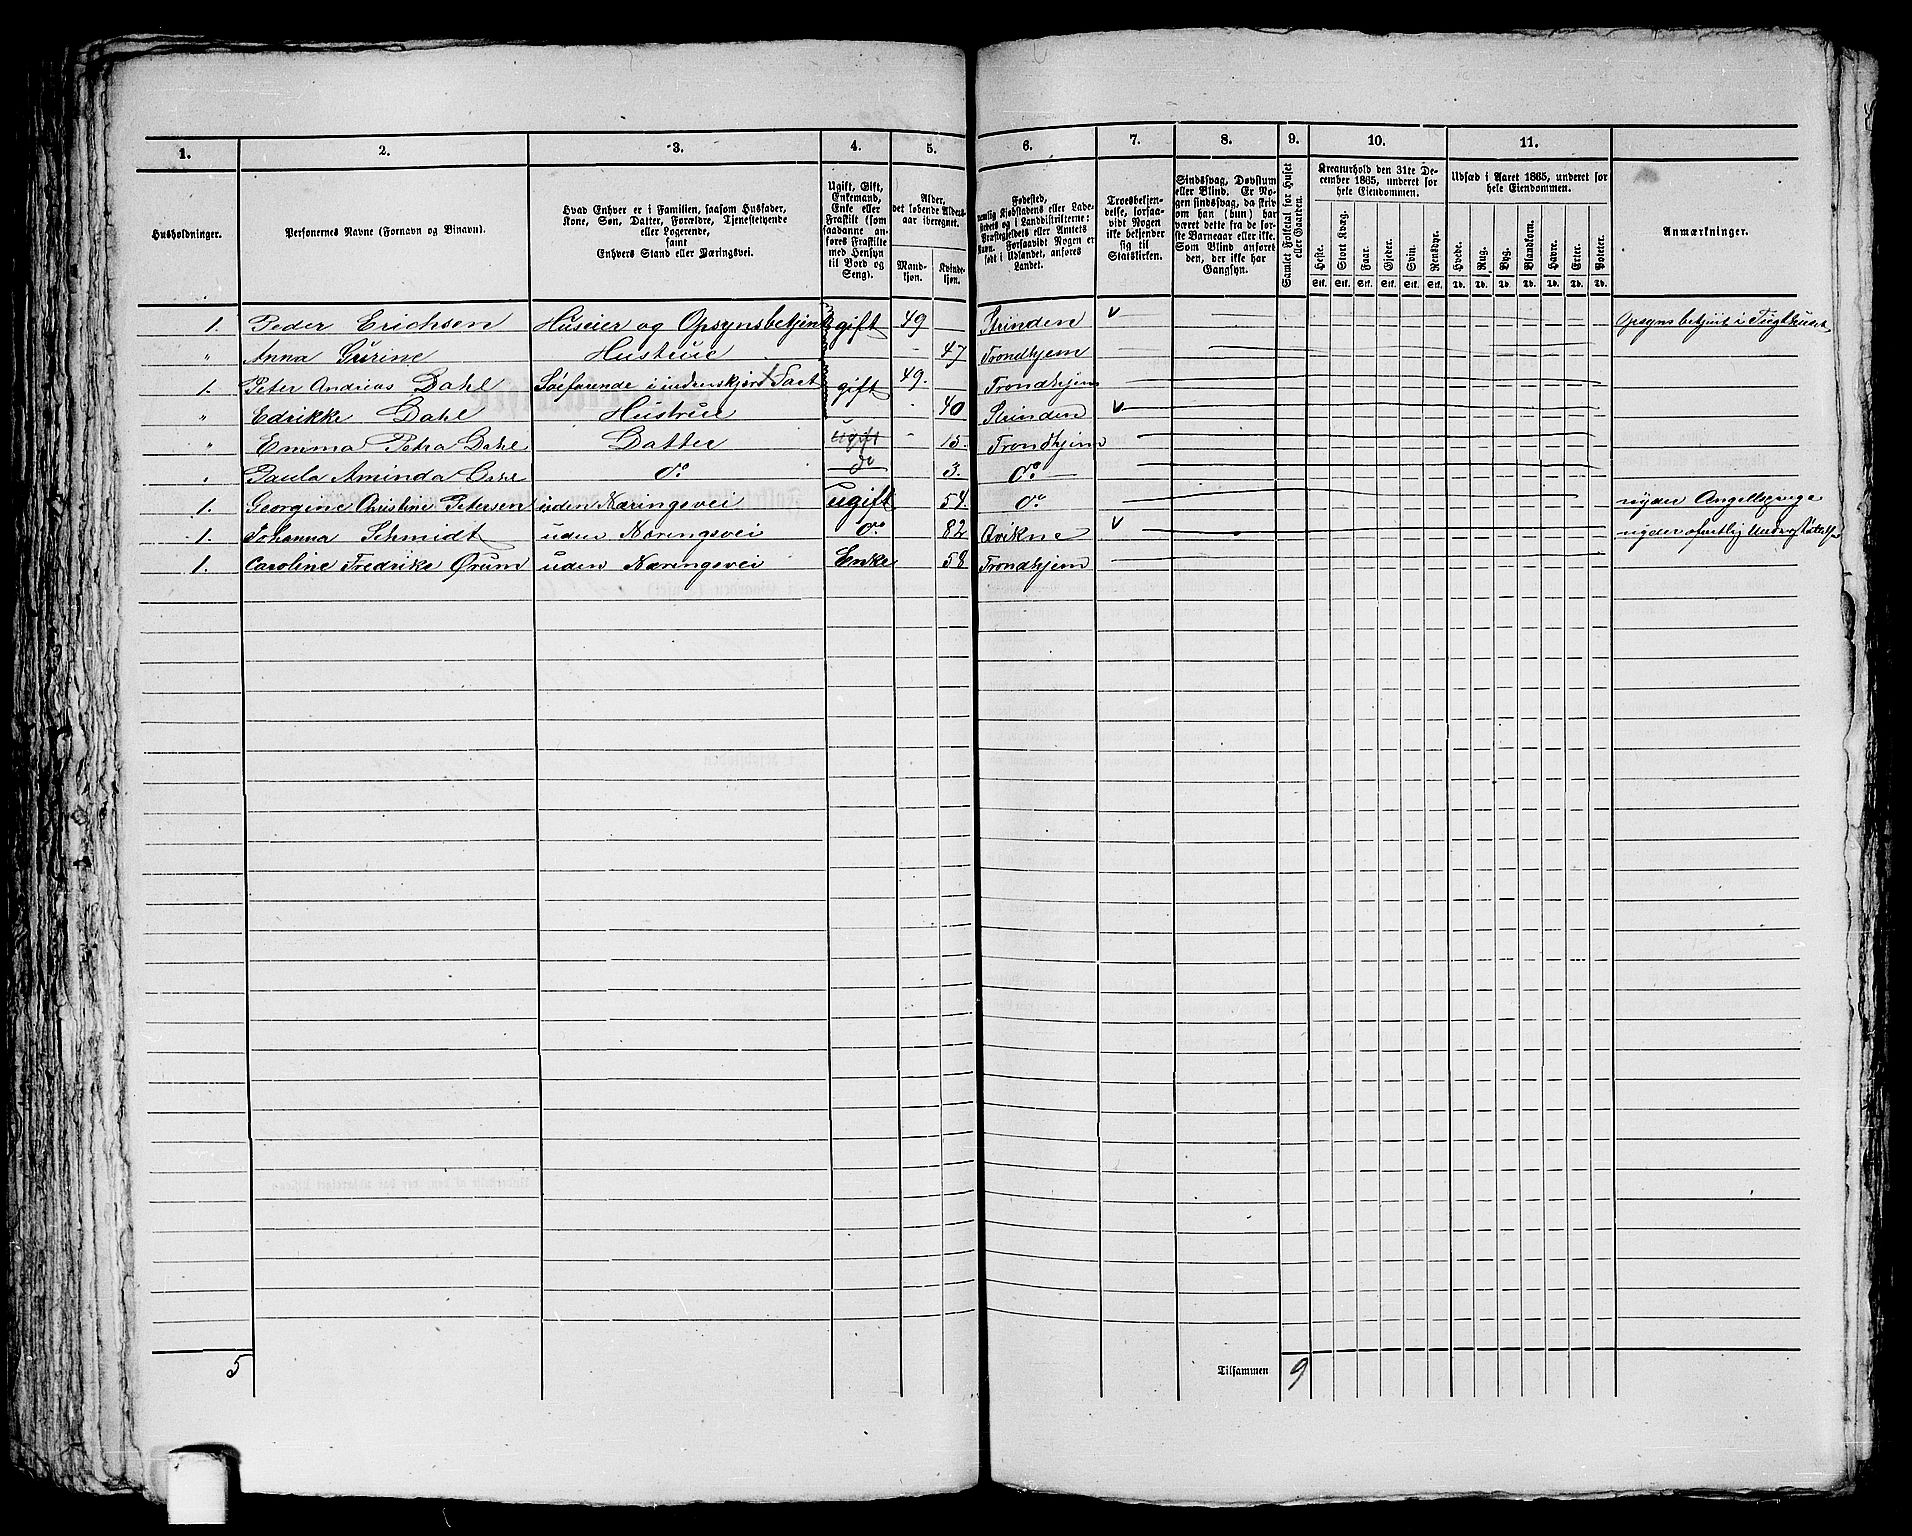 1. 2. 3. 4. 5. 6. 7. 8. 9. 10. 11.
Husholdninger.
Personernes Navne (Fornavn og Binavn).
Hvad Enhver er i Familien, saasom Husfader,
Kone, Søn, Datter, Forældre, Tjenestetyende
eller Logerende,
samt
Enhvers Stand eller Næringsvei.
Ugift, Gift,
Enkemand,
Enke eller
Fraskilt (som
saadanne an-
føres Fraskilte
med Hensyn
til Bord og
Seng).
Alder,
det løbende Alders-
aar iberegnet.
Mand-
kjøn.
Kvinde-
kjøn.
Fødested,
nemlig Kjøbstadens eller Lade-
stedets og i Landdistrikterne:
Præstegjeldets eller Amtets
Navn. Forsaavidt Nogen er
født i Udlandet, anføres
Landet.
Troesbekjen-
delse, forsaa-
vidt Nogen
ikke bekjender
sig til
Statskirken.
Sindssvag, Døvstum
eller Blind. Er No-
gen sindssvag, da skriv
om han (hun) har
været dette fra de før-
ste Barneaar eller ikke.
Som Blind anføres
den, der ikke har
Gangsyn.
Samlet Folketal for Huset
eller Gaarden.
Kreaturhold den 31te De-
cember 1865, underet for
hele Eiendommen.
Heste. Stort Kvæg. Faar. Gjeder. Svin. Rensdyr.
Stk. Stk. Stk. Stk. Stk. Stk.
Udsæd i Aaret 1865, underet for
hele Eiendommen.
Hvede. Rug. Byg. Blandkorn. Havre. Erter. Poteter.
Td. Td. Td. Td. Td. Td. Td.
Anmærkninger.
1. Peder Erichsen Huseier og Opsynsbetjent gift 49 Strinden v Opsynsbetjent i Tugthuset
" Anna Gurine Hustrue 47 Trondhjem
1. Peter Andreas Dahl Søefarende i indenskjers Fart gift 49. Trondhjem
" Edrikke Dahl Hustrue 40 Strinden v
" Emma Petra Dahl Datter ugift 13. Trondhjem
" Paula Aminda do do 3. do
1. Georgine Christine Petersen uden Næringsvei ugift 54. do nyder
1. Johanna Schmidt uden Næringsvei do 82 Qvikne v nyder ofentlig Understøttelse
1. Caroline Fredrike Ørum uden Næringsvei Enke 58 Trondhjem
5 Tilsammen 9